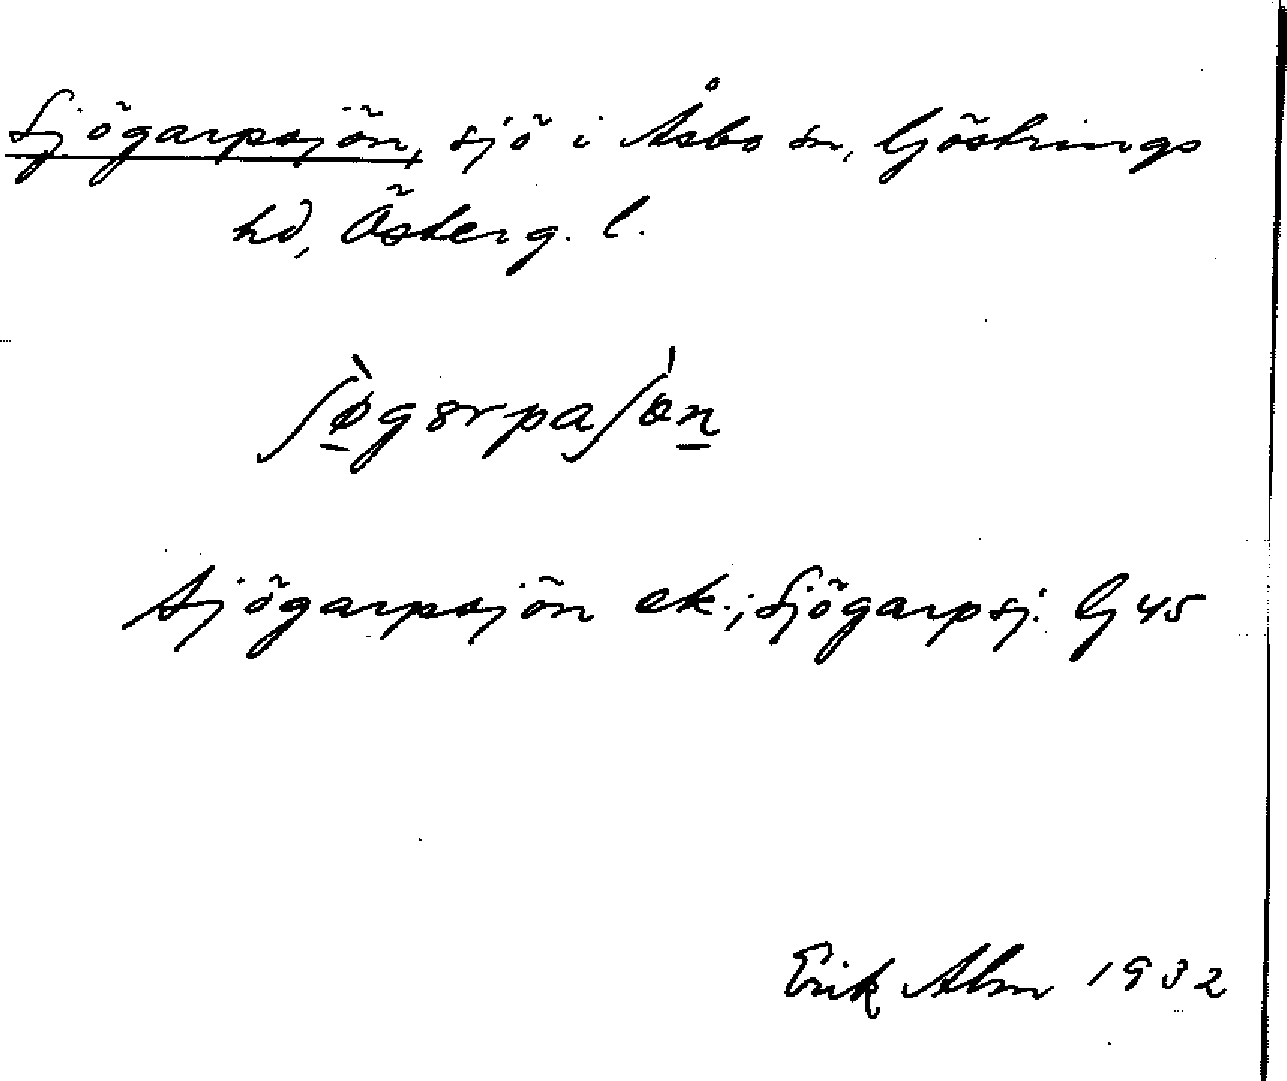 Sjögarpsjön, sjö i Åsbo sn, Göstrings
hd, Österg. l.
Sjögarpsjön ek.; Sjögarpsj. G 45
Erik Alm 1932